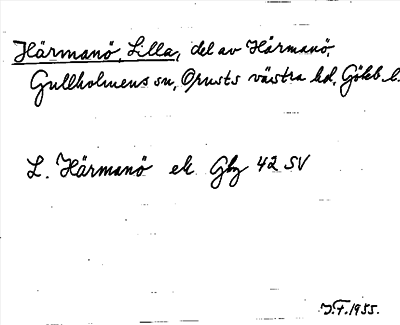 Härmanö, Lilla, del av Härmanö,
Gullholmens sn, Orusts västra hd, Göteb. l.
L. Härmanö ek Gbg 42 SV
J.F. 1955.